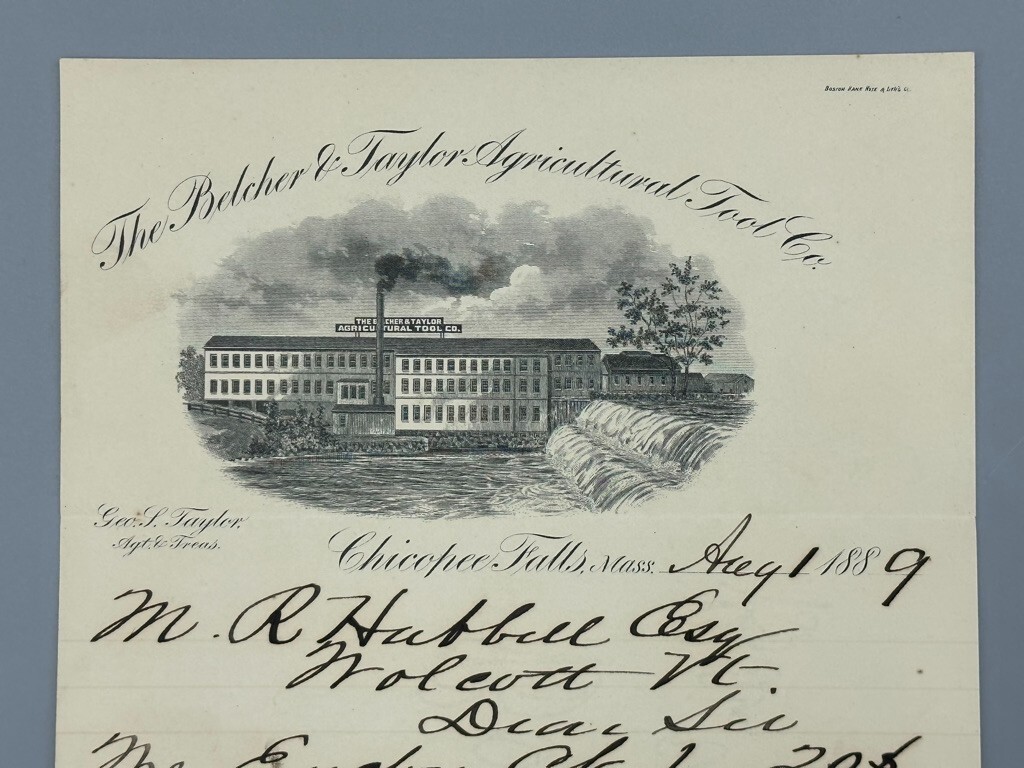 Boston Bank Note & Lith'g Co.
The Belcher & Taylor Agricultural Tool Co.
THE BELCHER & TAYLOR
AGRICULTURAL TOOL CO.
Geo. S. Taylor,
Agt. & Treas.
Chicopee Falls, Mass. Aug 1 1889
M. R Hubbell Esq
Wolcott Vt.
Dear Sir